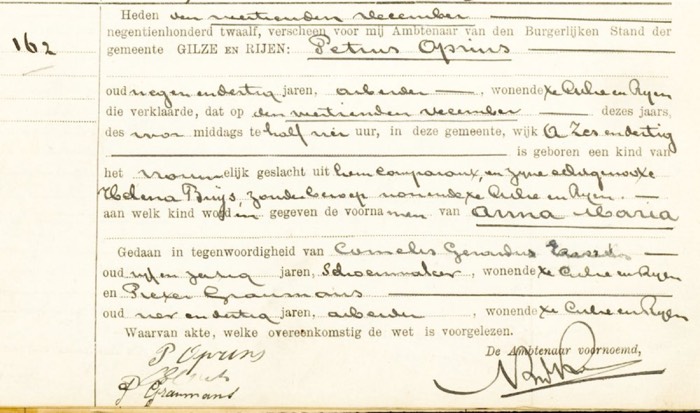 162
Heden den veertienden december
negentienhonderd twaalf, verscheen voor mij Ambtenaar van den Burgerlijken Stand der
gemeente GILZE EN RIJEN: Petrus Oprins
oud negen en dertig jaren, arbeider, wonende te Gilze en Rijen
die verklaarde, dat op den veertienden december dezes jaars,
des voor middags te half vier uur, in deze gemeente, wijk A Zes en dertig
is geboren een kind van
het vrouwelijk geslacht uit hem comparant, en zijne echtgenoote
Helena Buijs, zonder beroep wonende te Gilze en Rijen.
aan welk kind worden gegeven de voornamen van Anna Maria
Gedaan in tegenwoordigheid van Cornelis Gerardus
oud vijf en zestig jaren, Schoenmaker, wonende te Gilze en Rijen
en Pieter Graumans
oud vier en dertig jaren, arbeider, wonende te Gilze en Rijen
Waarvan akte, welke overeenkomstig de wet is voorgelezen.
P Oprins
De Ambtenaar voornoemd,
P Graumans